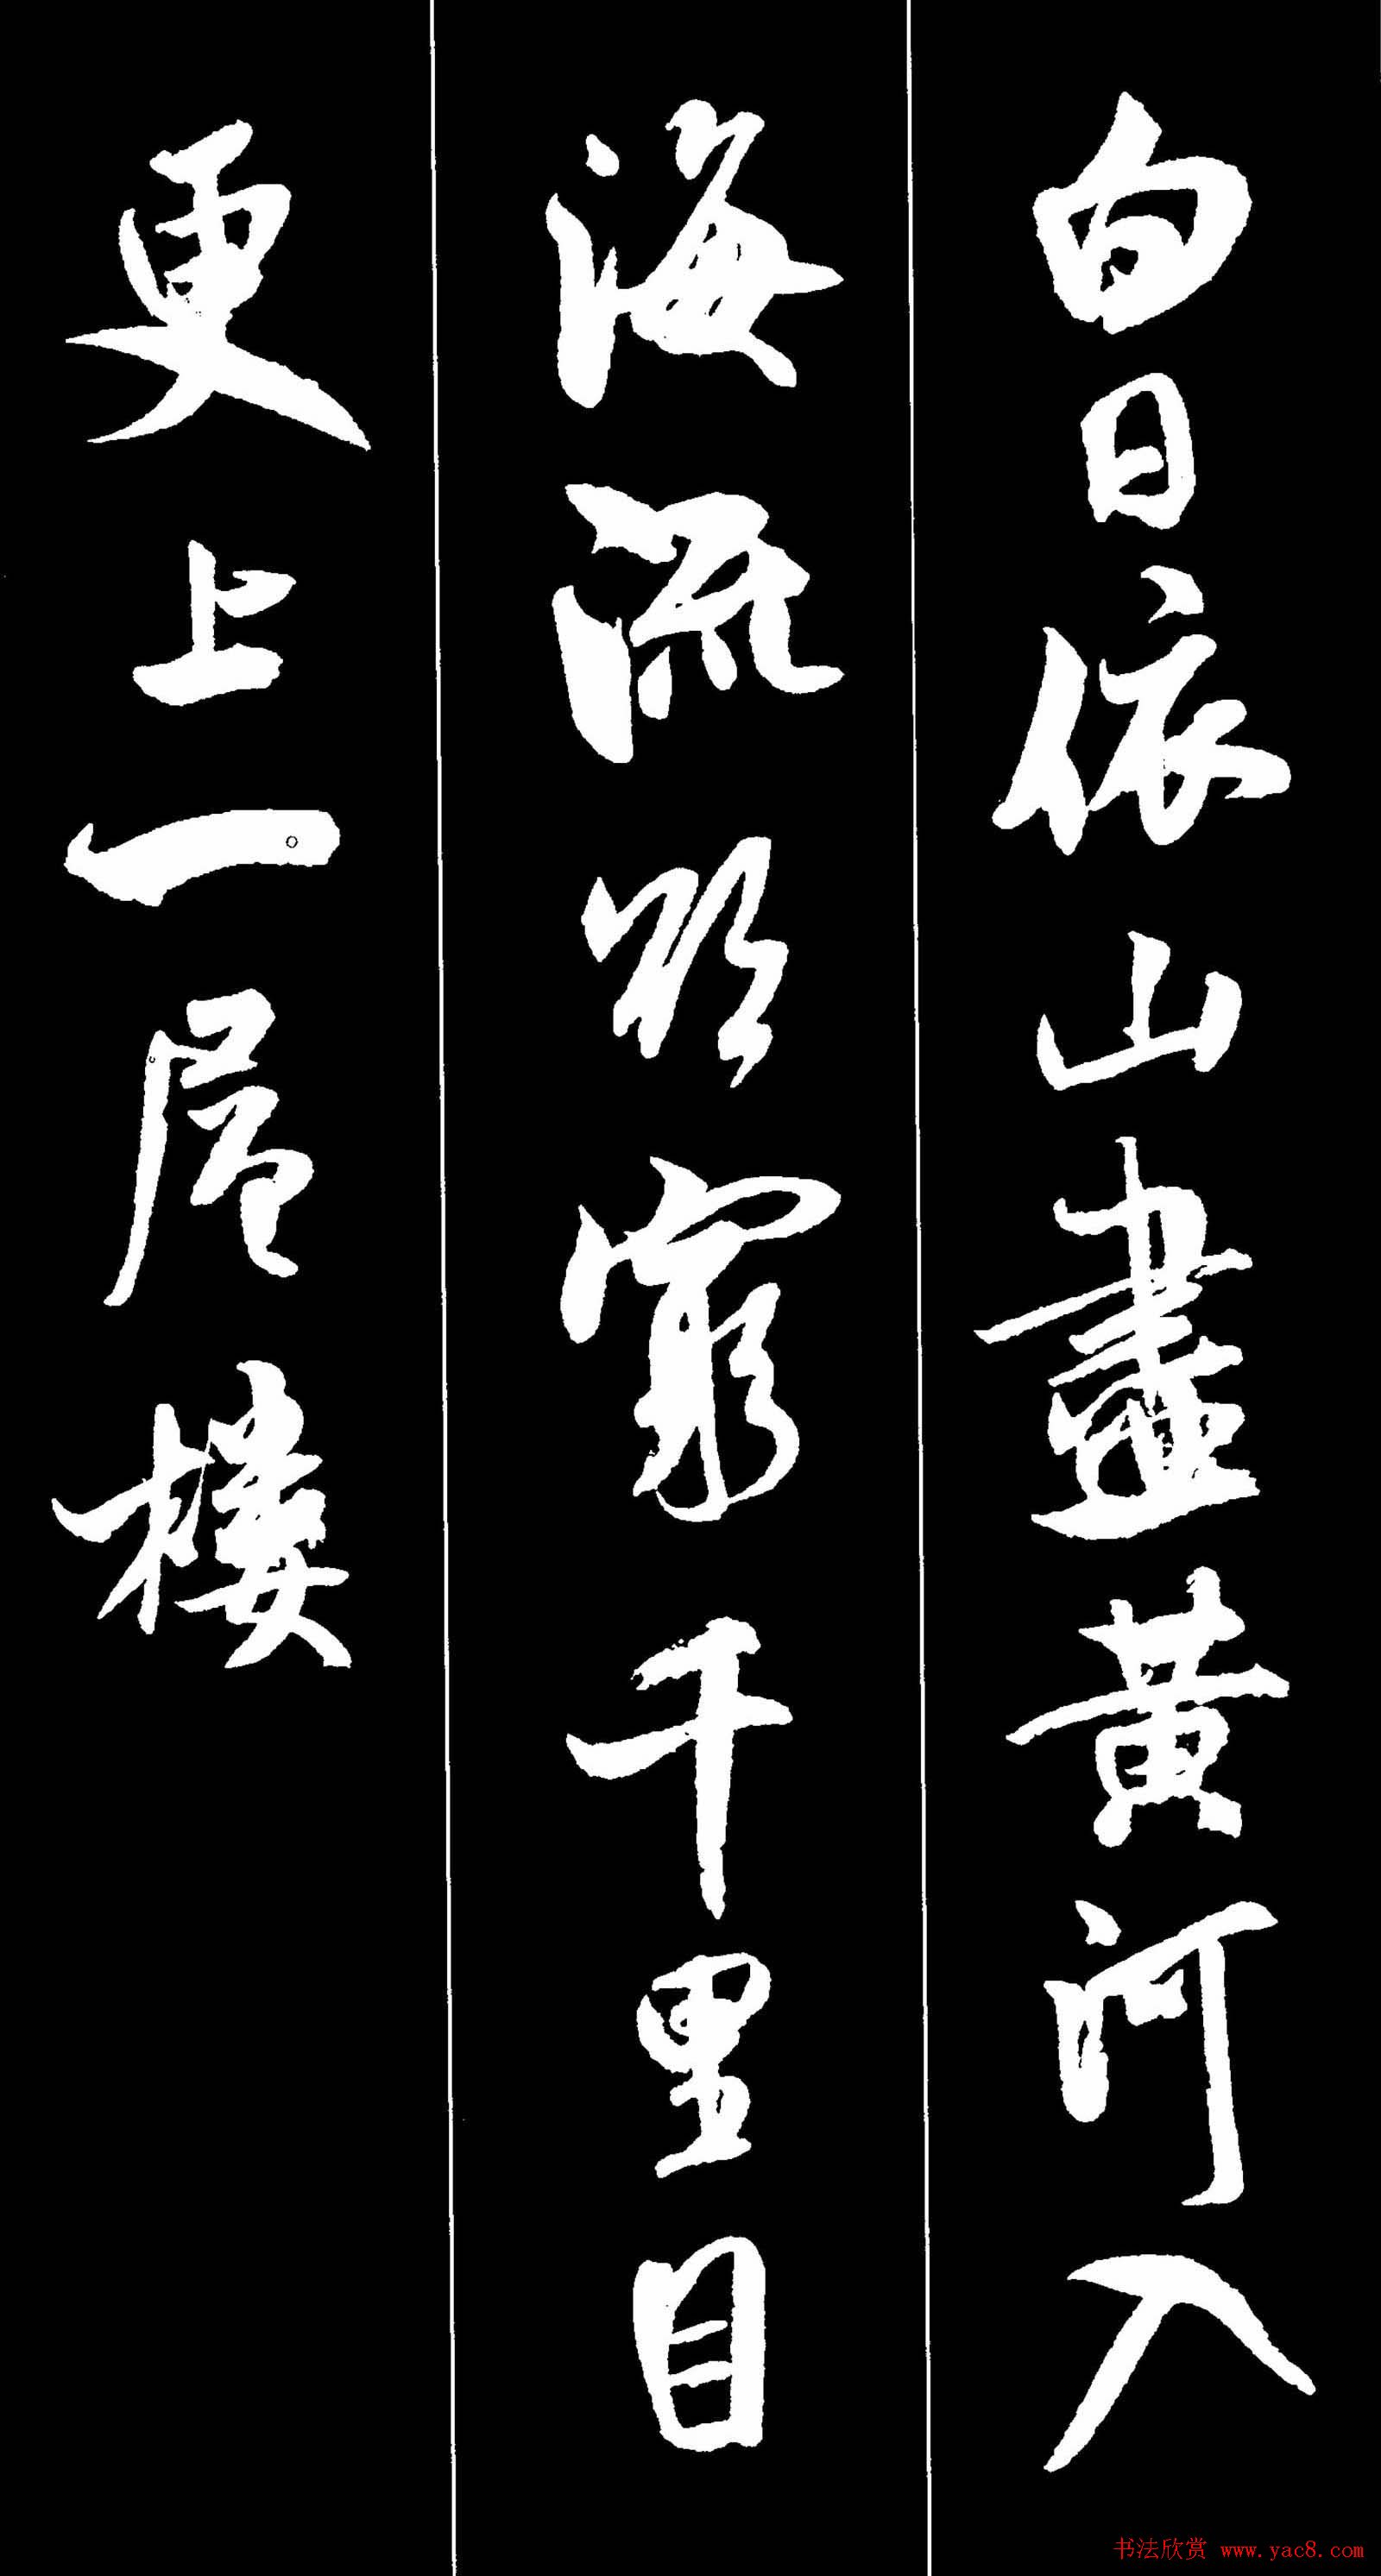 白日依山盡黃河入
海流欲窮千里目
更上一层楼
书法欣赏 www.yac8.com